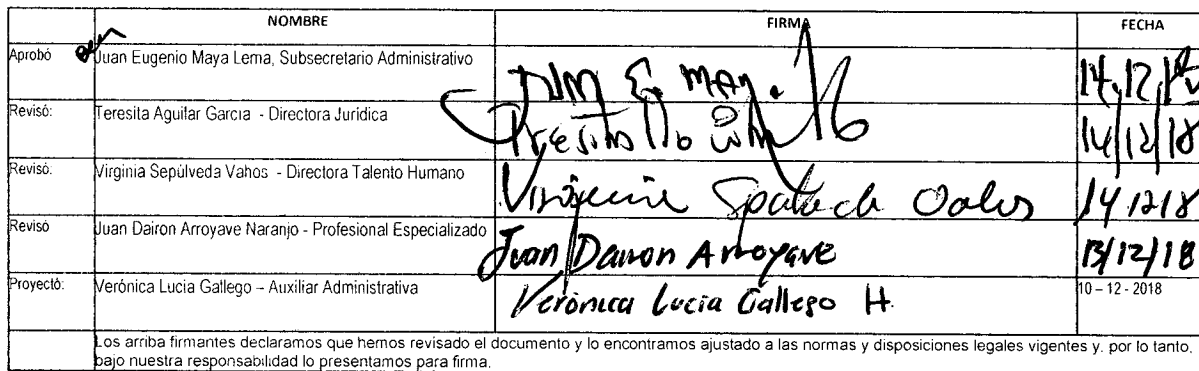 NOMBRE FIRMA FECHA
Aprobó Juan Eugenio Maya Lema, Subsecretario Administrativo 14,12,18
Revisó: Teresita Aguilar Garcia - Directora Juridica 14/12/18
Revisó: Virginia Sepúlveda Vahos - Directora Talento Humano 14 12 18
Revisó Juan Dairon Arroyave Naranjo - Profesional Especializado Juan Dairon Arroyave 13/12/18
Proyectó: Verónica Lucia Gallego – Auxiliar Administrativa Verónica Lucia Gallego H. 10 – 12 - 2018
Los arriba firmantes declaramos que hemos revisado el documento y lo encontramos ajustado a las normas y disposiciones legales vigentes y, por lo tanto,
bajo nuestra responsabilidad lo presentamos para firma.